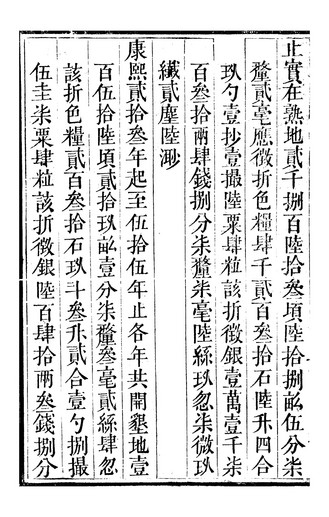 止實在熟地貳千捌百陸拾叁頃陸拾捌畝伍分柒
釐貳毫應徵折色糧肆千貳百叁拾石陸升四合
玖勺壹抄壹撮陸粟肆粒該折徵銀壹萬壹千柒
百叁拾兩肆錢捌分柒釐柒毫陸絲玖忽柒微玖
纖貳塵陸渺
康熙貳拾叁年起至伍拾伍年止各年共開墾地壹
百伍拾陸頃貳拾玖畝壹分柒釐叁毫貳絲肆忽
該折色糧貳百叁拾石玖斗叁升貳合壹勺捌撮
伍圭柒粟肆粒該折徵銀陸百肆拾兩叁錢捌分